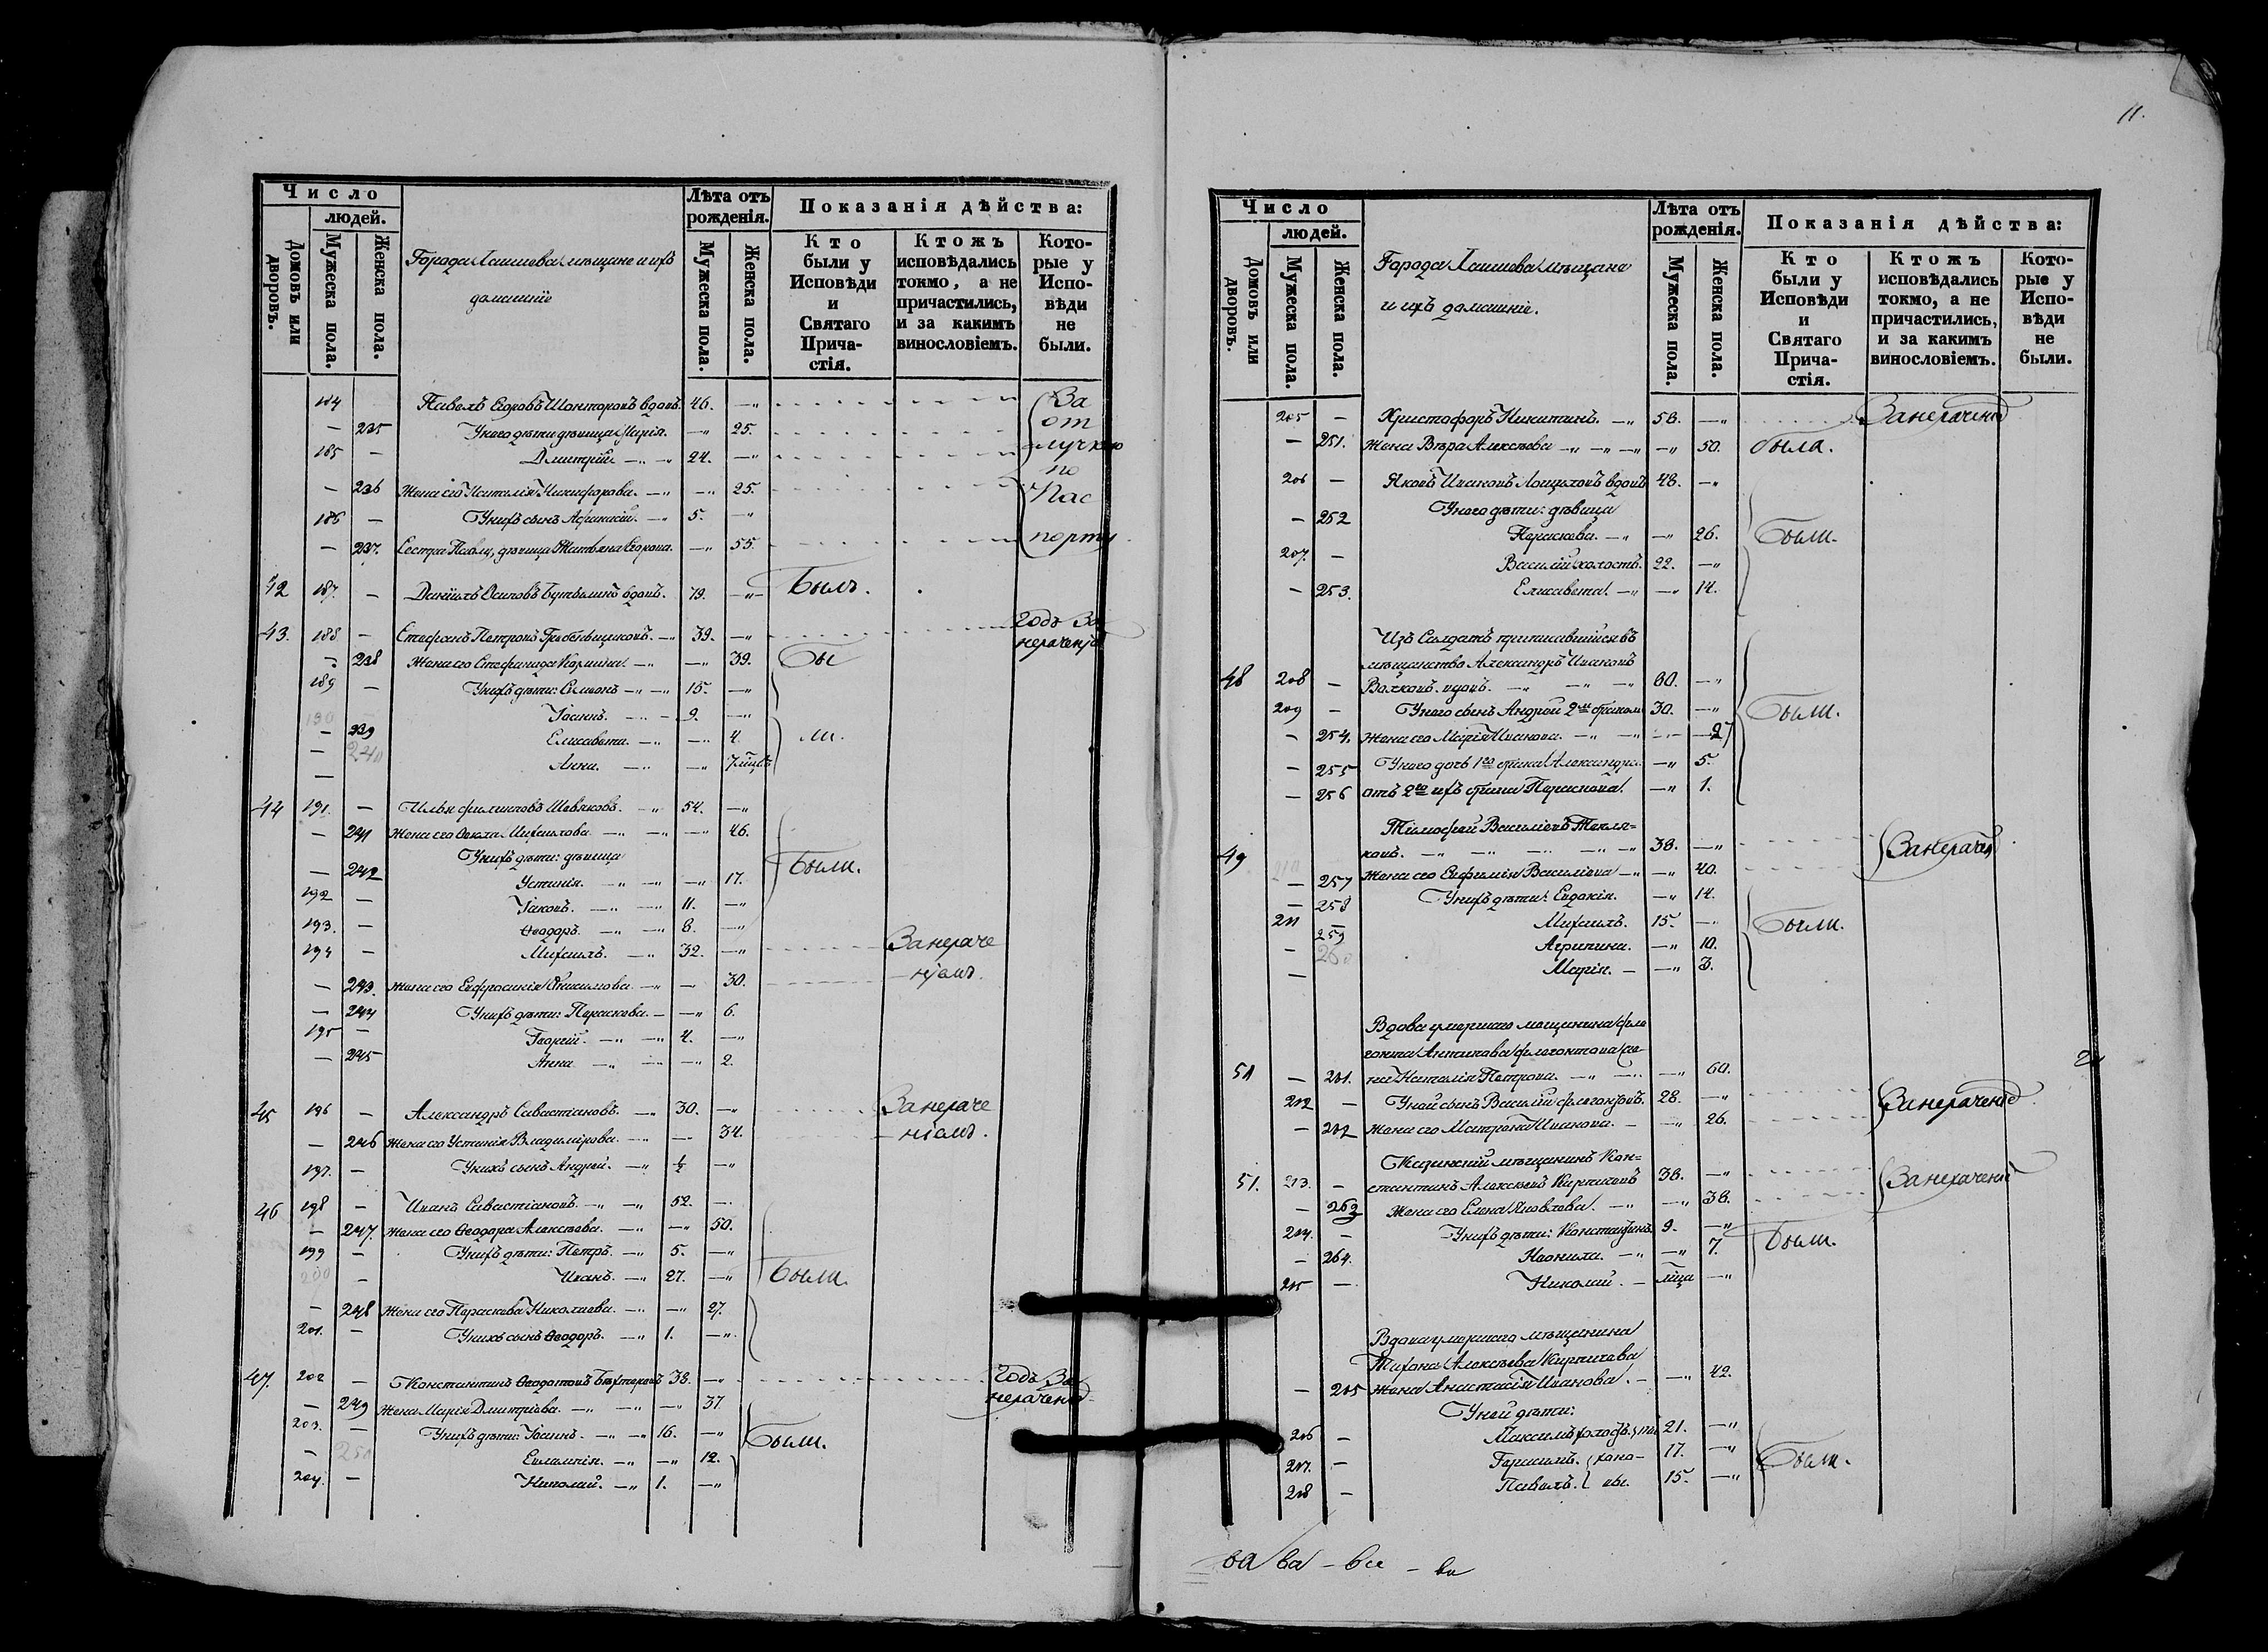 Число
людей.
Домовъ или дворовъ.
Мужеска пола.
Женска пола.
Города Лаишева мѣщане и ихъ
домашніе
Лѣта отъ рожденія.
Мужеска пола.
Женска пола.
Показанія дѣйства:
Кто были у Исповѣди и Святаго Прича-стія.
Ктожъ исповѣдались токмо, а не причастились, и за какимъ винословіемъ.
Кото-рые у Испо-вѣди не были.
184 Павелъ Егоровъ вдовъ. 46. За
— 235 У него дѣти дѣвица Марія. 25. от
185 — Дмитрій 24. лучкою
по
— 236 Жена его Наталія Никифорова. 25. Пас
186 — У нихъ сынъ Афанасій. 5.
— 237. Сестра Павлу, дѣвица Татьяна Егорова. 55. порту
42 187. — Даніилъ Осиповъ вдовъ. 79. Былъ.
Годъ За
43. 188 — Стефанъ Петровъ Гребенщиковъ. 39. нераченіе
— 238 Жена его Стефанида 39. Бы
189 — У нихъ дѣти: Симеонъ 15.
190 Іоаннъ. 9.
— 239 Елисавета. 4. ли.
— 240 Анна. 7 мѣцъ
44 191. — Илья Филиповъ Шевяковъ. 54.
— 241 Жена его Ѳекла Михайлова 46.
У нихъ дѣти: дѣвица
— 242 Устинія. 17. Были.
192 — Іаковъ. 11.
193. — Ѳеодоръ. 8.
194 — Михаилъ. 32. За нераче
— 243. Жена его Евфросинія Анисимова 30. — ніемъ.
— 244 У нихъ дѣти: Параскева. 6.
195 — Георгій. 4.
— 245 Анна 2.
45 196 — Александръ Савастіановъ. 30. За нераче
— 246 Жена его Устинія Владимірова. 34. — ніемъ.
197. — У нихъ сынъ Андрей. ½
46 198 — Иванъ Савастіановъ. 52.
— 247. Жена его Ѳеодора Алексѣева. 50.
199 — У нихъ дѣти: Петръ. 5.
200 — Иванъ. 27. Были.
— 248 Жена его Параскева Николаева. 27.
201. — У нихъ сынъ Ѳеодоръ. 1.
47. 202 — Константинъ Ѳеодотовъ 38. Годъ За
— 249 Жена Марія Дмитріева. 37 нераченіе
203. — У нихъ дѣти: Іоаннъ. 16. Были.
— 250 Евлампія. 12.
204. — Николай. 1.
11.
Число
людей.
Домовъ или дворовъ.
Мужеска пола.
Женска пола.
Города Лаишева мѣщане
и ихъ домашніе.
Лѣта отъ рожденія.
Мужеска пола.
Женска пола.
Показанія дѣйства:
Кто были у Исповѣди и Святаго Прича-стія.
Ктожъ исповѣдались токмо, а не причастились, и за какимъ винословіемъ.
Кото-рые у Испо-вѣди не были.
205 — Христофоръ Никитинъ. 58. За нераченіе
— 251. Жена Вѣра Алексѣева 50. была.
206 — Яковъ Ивановъ вдовъ 48.
— 252 У него дѣти: дѣвица
Параскева. 26. Были.
207. — Василій холостъ. 22.
— 253. Елисавета. 14.
Изъ Солдатъ приписавшійся въ
мѣщанство Александръ Ивановъ
48 208 — Волковъ. вдовъ. 60.
209 — У него сынъ Андрей 2мъ бракомъ 30. Были.
— 254. Жена его Марія Иванова. 27
— 255 У него дочь 1го брака Александра 5.
— 256 отъ 2го ихъ брака Параскева. 1.
Тимофей Васильевъ
49 210 ковъ. 38. За нерачен
— 257 Жена его Евфимія Васильева 40.
— 258 У нихъ дѣти: Евдокія. 14.
211 — Михаилъ. 15. Были.
— 259 Агрипина. 10.
— 260 Марія. 3.
Вдова умершаго мѣщанина
51 — 261. Наталія Петрова. 60.
212 — У ней сынъ Василій 28. За нераченіе
— 262 Жена его Матрона Иванова. 26.
Казанскій мѣщанинъ Кон=
51. 213. — стантинъ Алексѣевъ Кирпичевъ 38. За нераченіе
— 263 Жена его Елена Яковлева. 38.
214. — У нихъ дѣти: Константинъ. 9.
— 264. Неонила. 7. Были.
215 — Николай.
Вдова умершаго мѣщанина
Тихона Алексѣева Кирпичева
— 265 Жена Анастасія Иванова. 42.
У ней дѣти:
216 — Максимъ 21.
217. — Герасимъ. 17. Были.
218 — Павелъ. 15.
ва ва – ва – ва